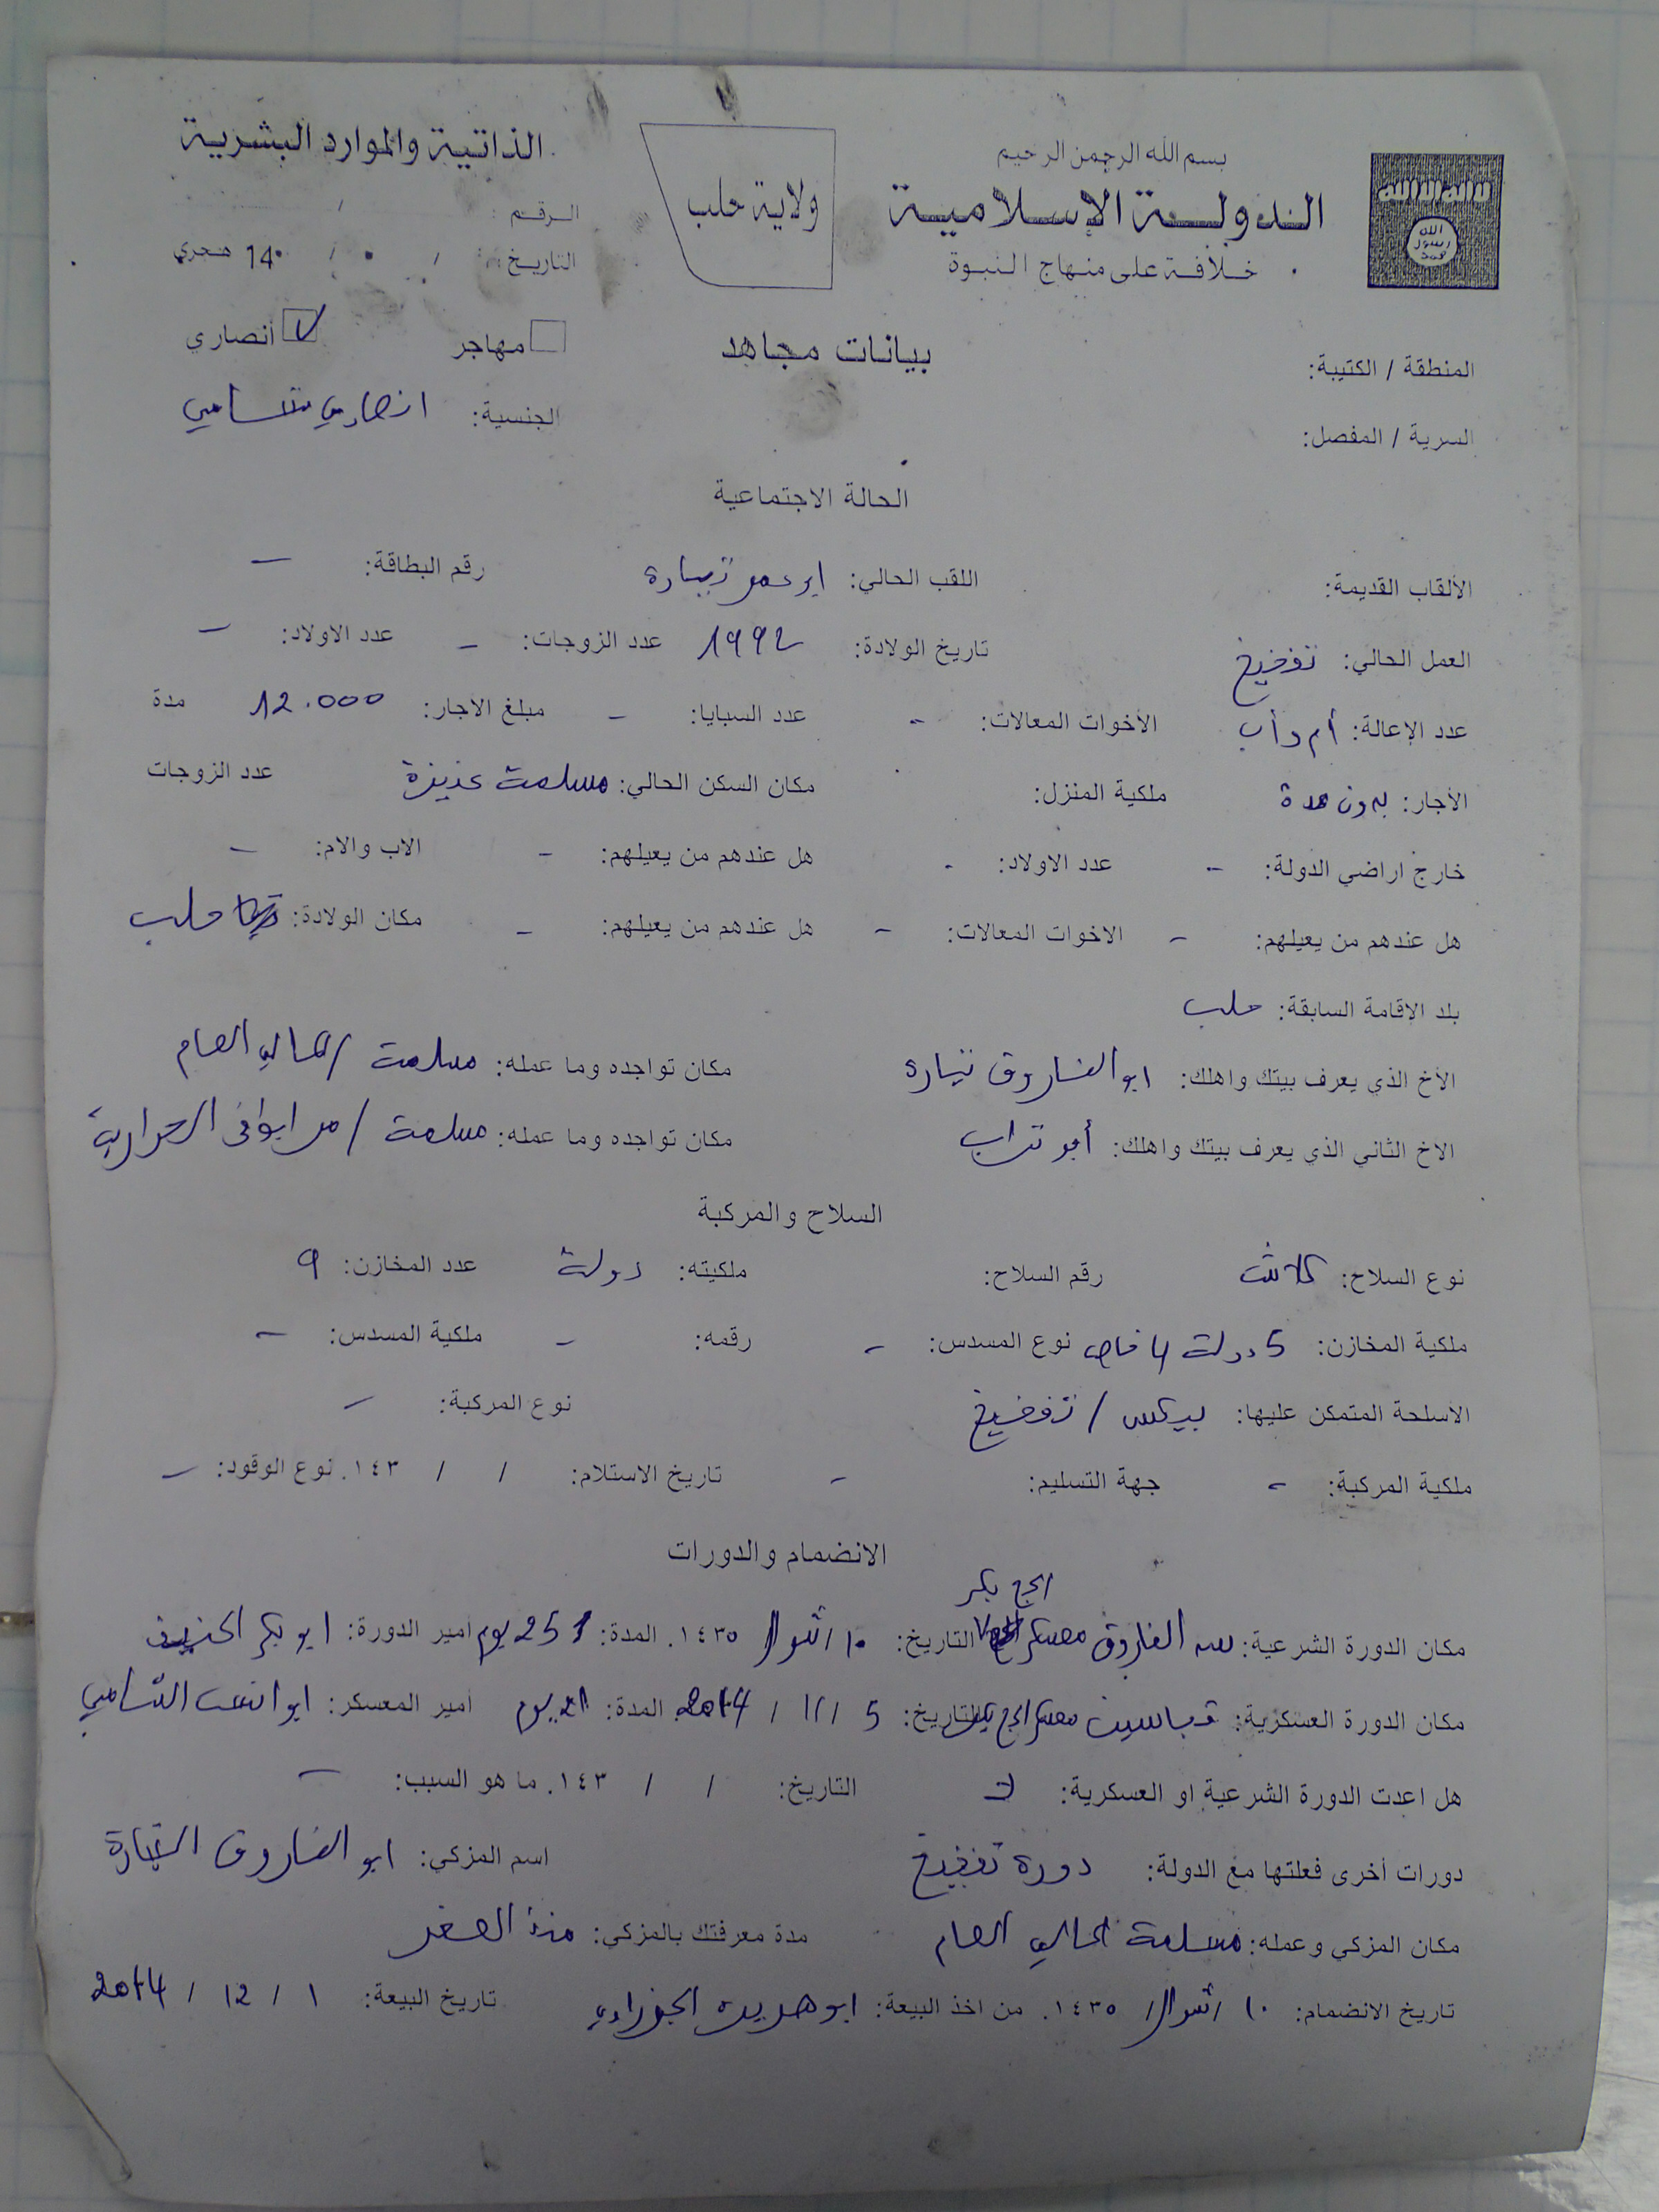 بسم الله الرحمن الرحيم
الدولة الإسلامية
خلافة على منهاج النبوة
ولاية حلب
الذاتية والموارد البشرية
الرقم: /
التاريخ: / / 140 هجري
الله رسول محمد
بيانات مجاهد
مهاجر أنصاري
المنطقة / الكتيبة:
الجنسية: انصاري شامي
السرية / المفصل:
الحالة الاجتماعية
الألقاب القديمة: اللقب الحالي: ابو عمر تيارة رقم البطاقة: –
العمل الحالي: تفخيخ تاريخ الولادة: 1992 عدد الزوجات: – عدد الاولاد: –
عدد الإعالة: أم وأب الأخوات المعالات: – عدد السبايا: – مبلغ الاجار: 12.000 مدة
الأجار: بدون مدة ملكية المنزل: مكان السكن الحالي: مسلمة عزيزة عدد الزوجات
خارج اراضي الدولة: – عدد الاولاد: – هل عندهم من يعيلهم: – الاب والام: –
هل عندهم من يعيلهم: – الاخوات المعالات: – هل عندهم من يعيلهم: – مكان الولادة: حلب
بلد الاقامة السابقة: حلب
الأخ الذي يعرف بيتك واهلك: ابو الفاروق تيارة مكان تواجده وما عمله: مسلمة / المالي العام
الاخ الثاني الذي يعرف بيتك واهلك: أبو تراب مكان تواجده وما عمله: مسلمة / الحرارية
السلاح والمركبة
نوع السلاح: كلاشن رقم السلاح: ملكيته: دولة عدد المخازن: 9
ملكية المخازن: 5 دولة 4 خاص نوع المسدس: – رقمه: – ملكية المسدس: –
الأسلحة المتمكن عليها: بيكس / تفخيخ نوع المركبة: –
ملكية المركبة: – جهة التسليم: – تاريخ الاستلام: / / ١٤٣. نوع الوقود: –
الانضمام والدورات
مكان الدورة الشرعية: سد الفاروق معسكر الحج بكر التاريخ: ١٠ / شوال / ١٤٣٥. المدة: 25 يوم امير الدورة: ابو بكر
مكان الدورة العسكرية: قباسين معسكر الحج بكر التاريخ: 5 / 11 / 2014 المدة: 21 يوم أمير المعسكر: ابو الشامي
هل اعدت الدورة الشرعية او العسكرية: لا التاريخ: / / ١٤٣. ما هو السبب: –
دورات أخرى فعلتها مع الدولة: دورة تفخيخ اسم المزكي: ابو الفاروق التيارة
مكان المزكي وعمله: مسلمة المالي العام مدة معرفتك بالمزكي: منذ الصغر
تاريخ الانضمام: ١٠ / شوال / ١٤٣٥. من اخذ البيعة: ابو هريرة الجزراوي تاريخ البيعة: 1 / 12 / 2014